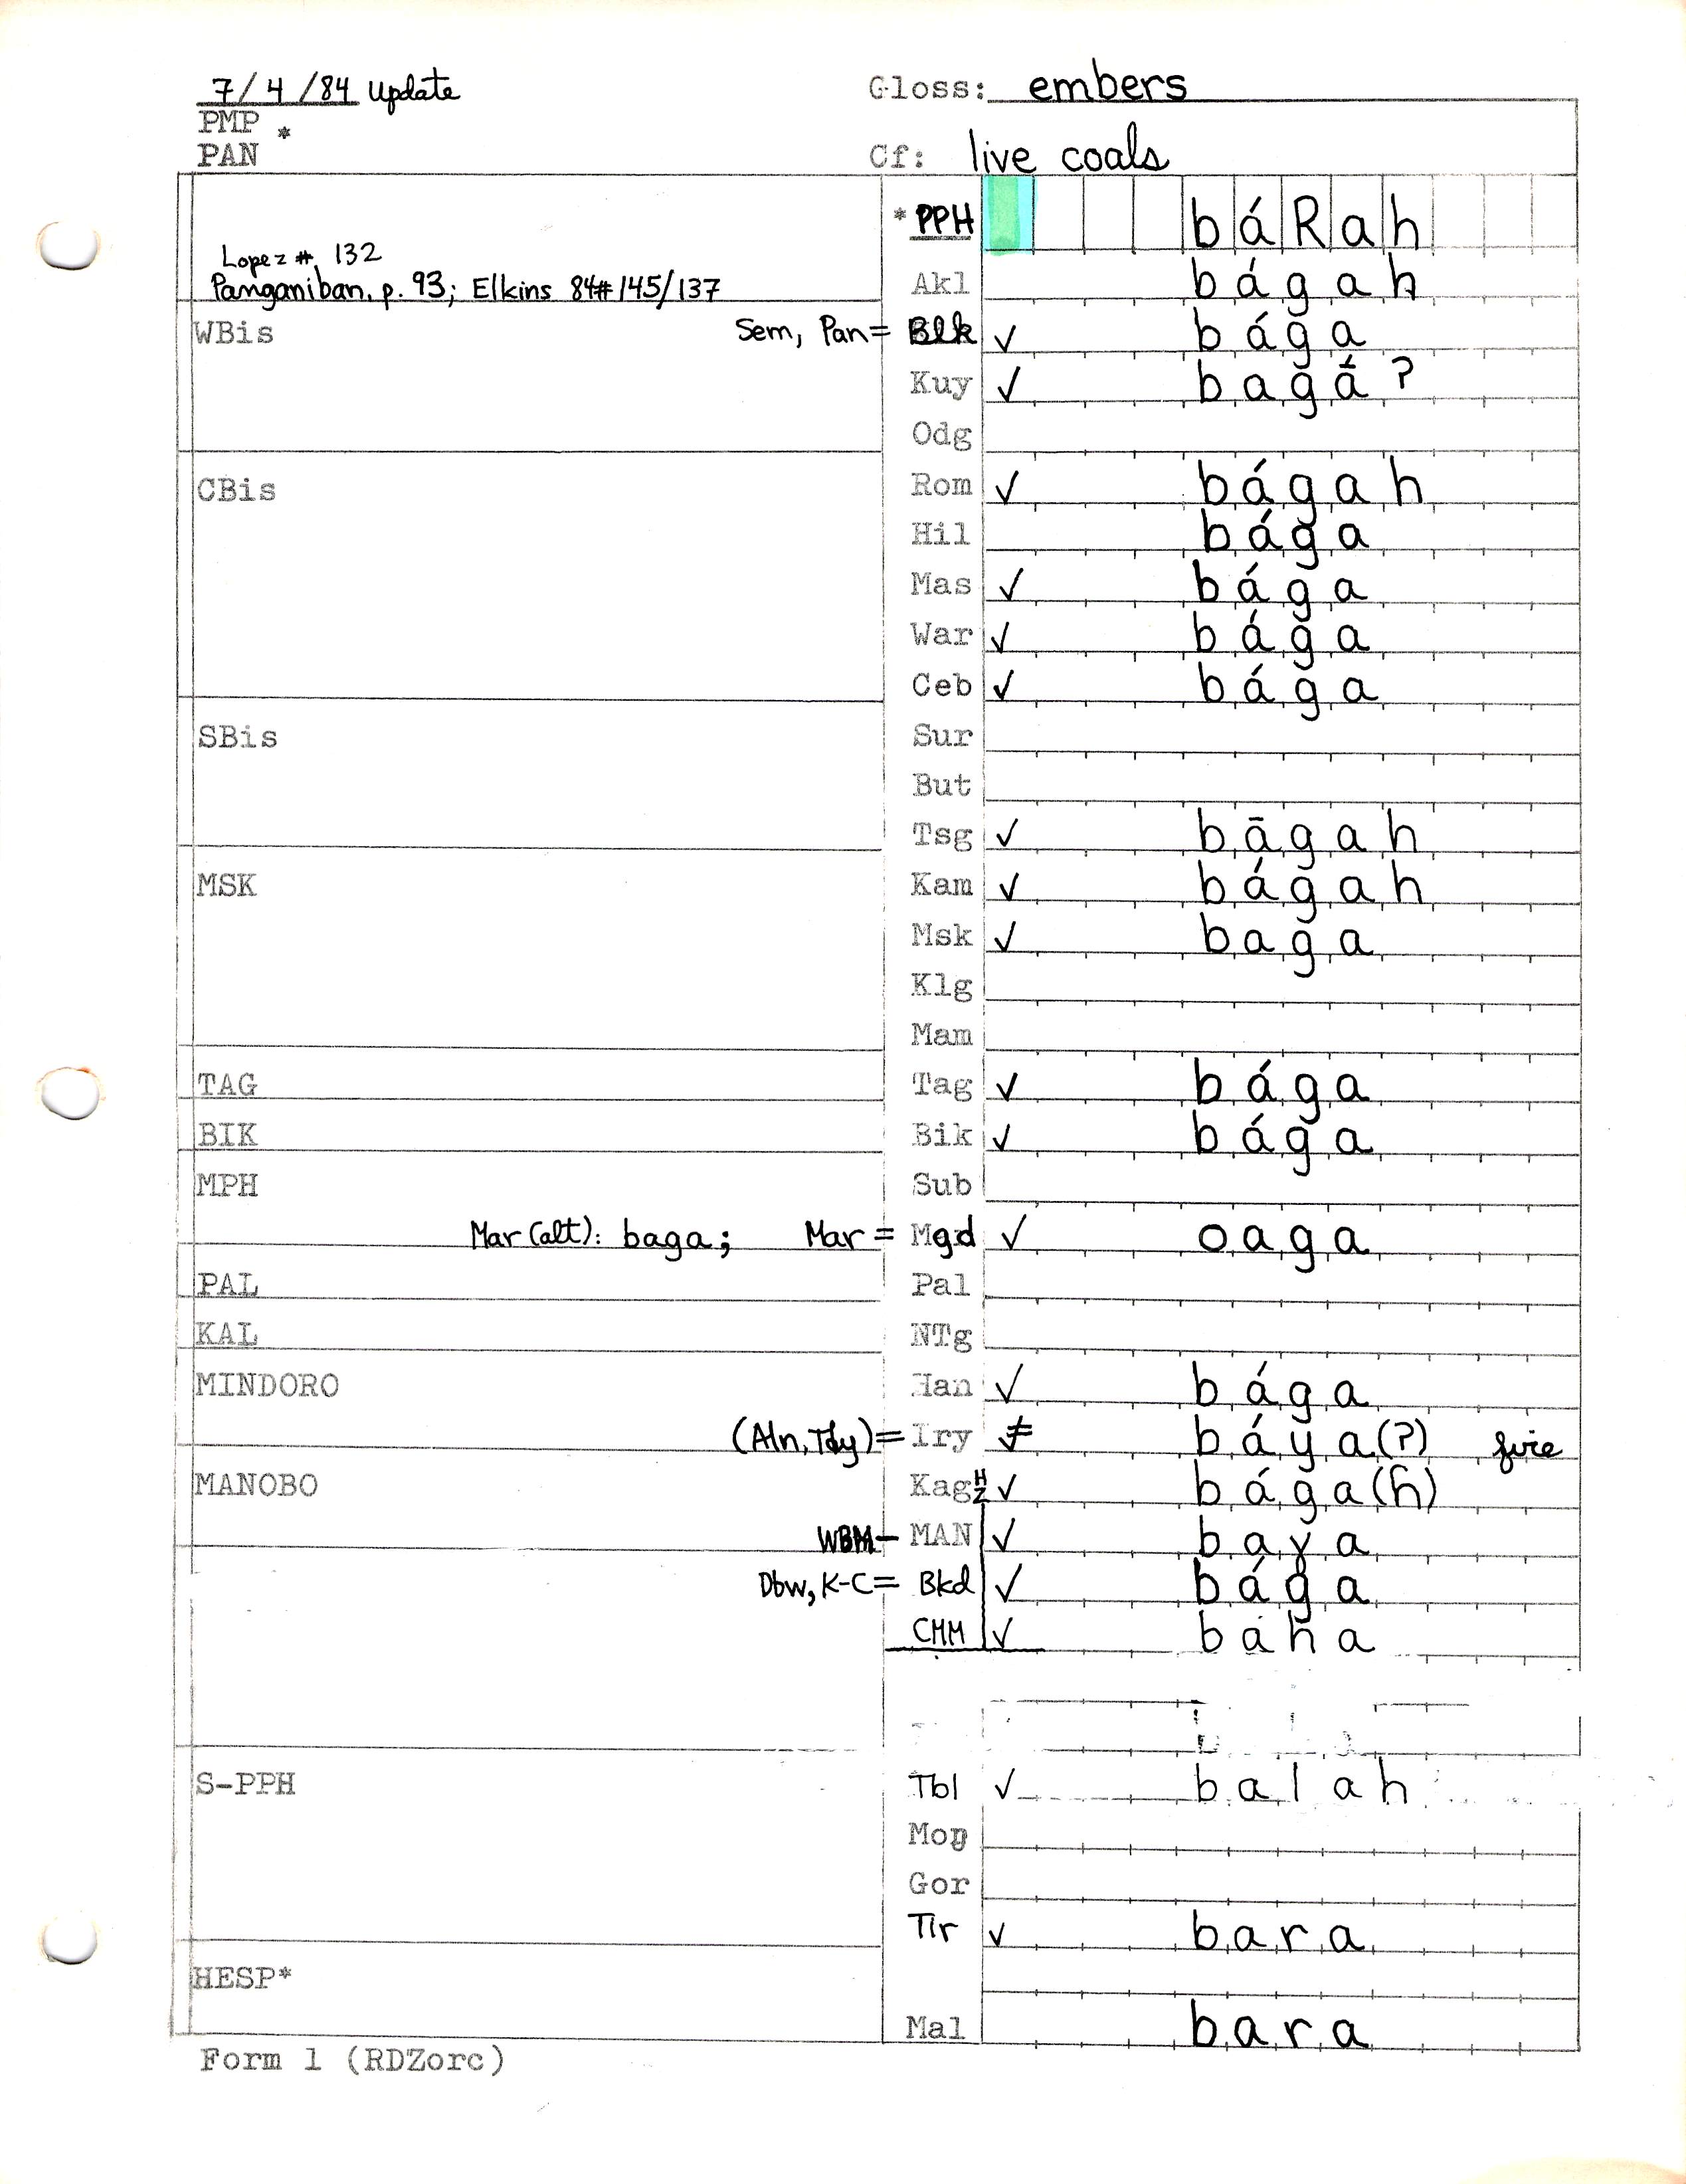 7/4/84 Update Gloss: embers
PMP *
PAN Cf: live coals
* PPH báRah
Lopez # 132
Panganiban, p. 93; Elkins 84#145/137 Akl bágah
WBis Sem, Pan = Blk ✓ bága
Kuy ✓ bagá ?
Odg
CBis Rom ✓ bágah
Hil bága
Mas ✓ bága
War ✓ bága
Ceb ✓ bága
SBis Sur
But
Tsg ✓ bāgah
MSK Kam ✓ bágah
Msk ✓ baga
Klg
Mam
TAG Tag ✓ bága
BIK Bik ✓ bága
MPH Sub
Mar (alt): baga; Mar = Mgd ✓ oaga
PAL Pal
KAL NTg
MINDORO Han ✓ bága
(Aln, Tdy) = Iry ≠ báya(?) fire
MANOBO Kag H Z ✓ bága(h)
WBM - MAN ✓ baɣa
Dbw, K-C = Bkd ✓ bága
CMM ✓ baha
S-PPH Tbl ✓ balah
Moŋ
Gor
Tir ✓ bara
HESP*
Mal bara
Form 1 (RDZorc)